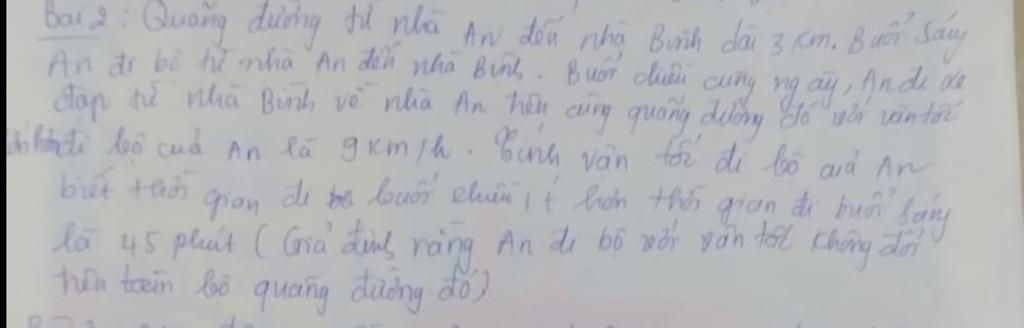 Bài 2: Quãng đường từ nhà An đến nhà Bình dài 3 km. Buổi sáng
An đi bộ từ nhà An đến nhà Bình. Buổi chiều cùng ngày, An đi xe
đạp từ nhà Bình về nhà An trên cùng quãng đường đó với vận tốc
lớn hơn đi bộ của An là 9 km/h. Tính vận tốc đi bộ của An
biết thời gian đi buổi chiều ít hơn thời gian đi buổi sáng
là 45 phút (Giả định rằng An đi bộ với vận tốc không đổi
trên toàn bộ quãng đường đó)